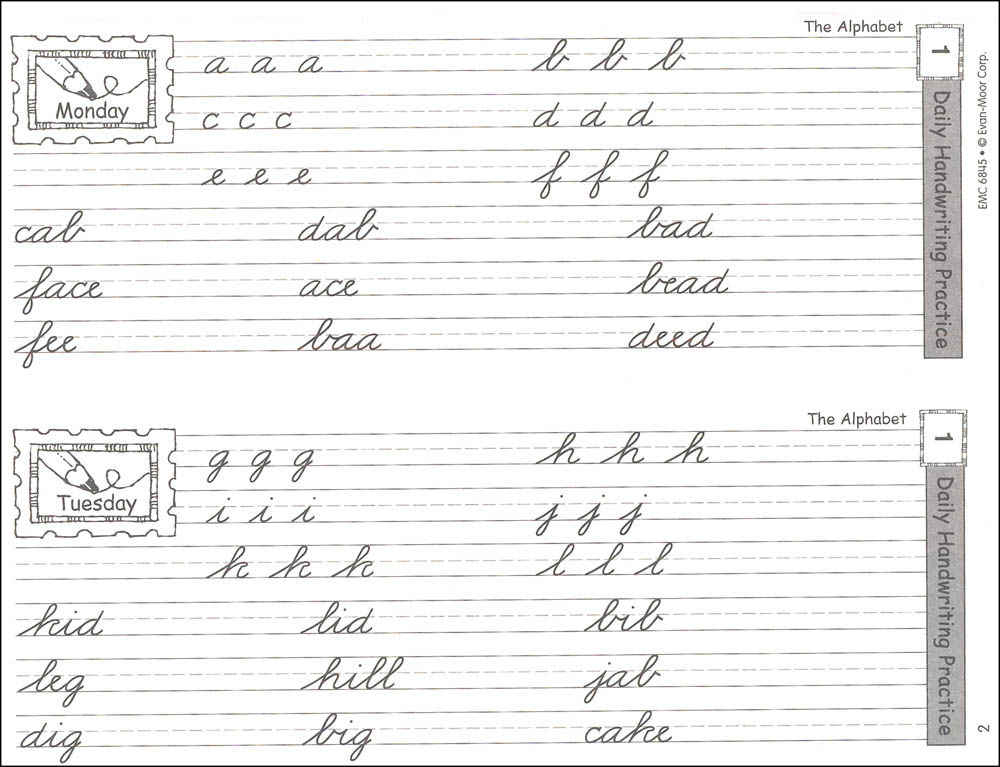 The Alphabet
1
Daily Handwriting Practice
EMC 6845 • © Evan-Moor Corp.
Monday
a a a b b b
c c c d d d
e e e f f f
cab dab bad
face ace bead
fee baa deed
The Alphabet
1
Daily Handwriting Practice
Tuesday
g g g h h h
i i i j j j
k k k l l l
kid lid bib
leg hill jab
dig big cake
2